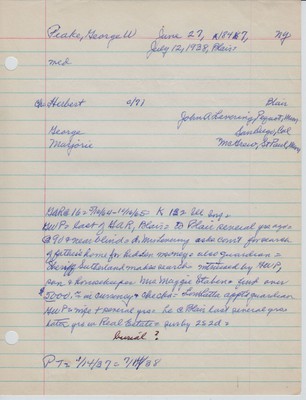 Peake, George W June 27, 1847, NY
July 12, 1938, Blair
med
ch Herbert o/71 Blair
John A Levering, Pequot, Minn
George San Diego, Cal
Marjorie McGrew, St Paul, Minn
K 132 Ill Eng -
HWP last of GAR, Blair = To Blair several yrs ago =
@ 90 & near blind = d. Mrs Levering asks court for search
of father's home for hidden money & also guardian =
Sheriff Sutherland makes search - witnessed by HWP,
son & housekeeper Mrs Maggie Staben = find over
$5000.00 in currency & checks =
appts guardian
several yrs = Blair last several yrs
Real Estate = surby 2s 2d =
burial?
PT = 9/14/37 =